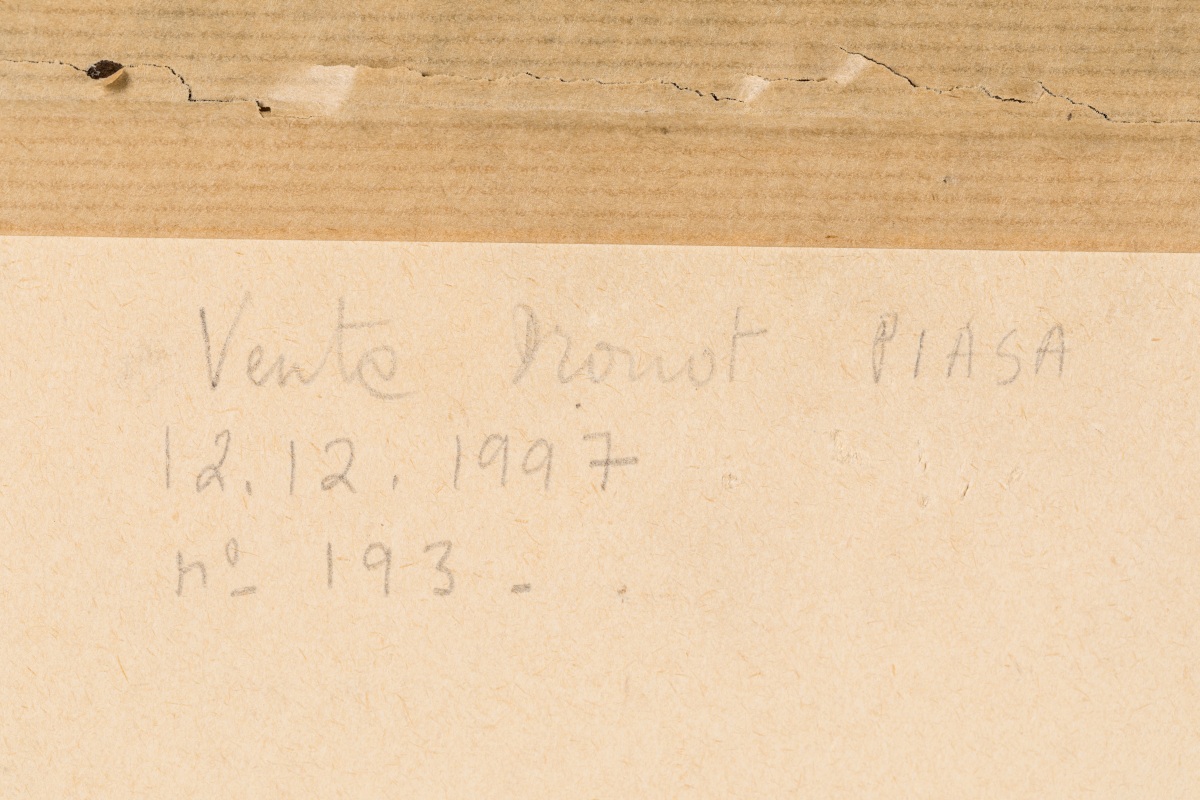 Vente Drouot PIASA
12.12.1997
nº 193 -